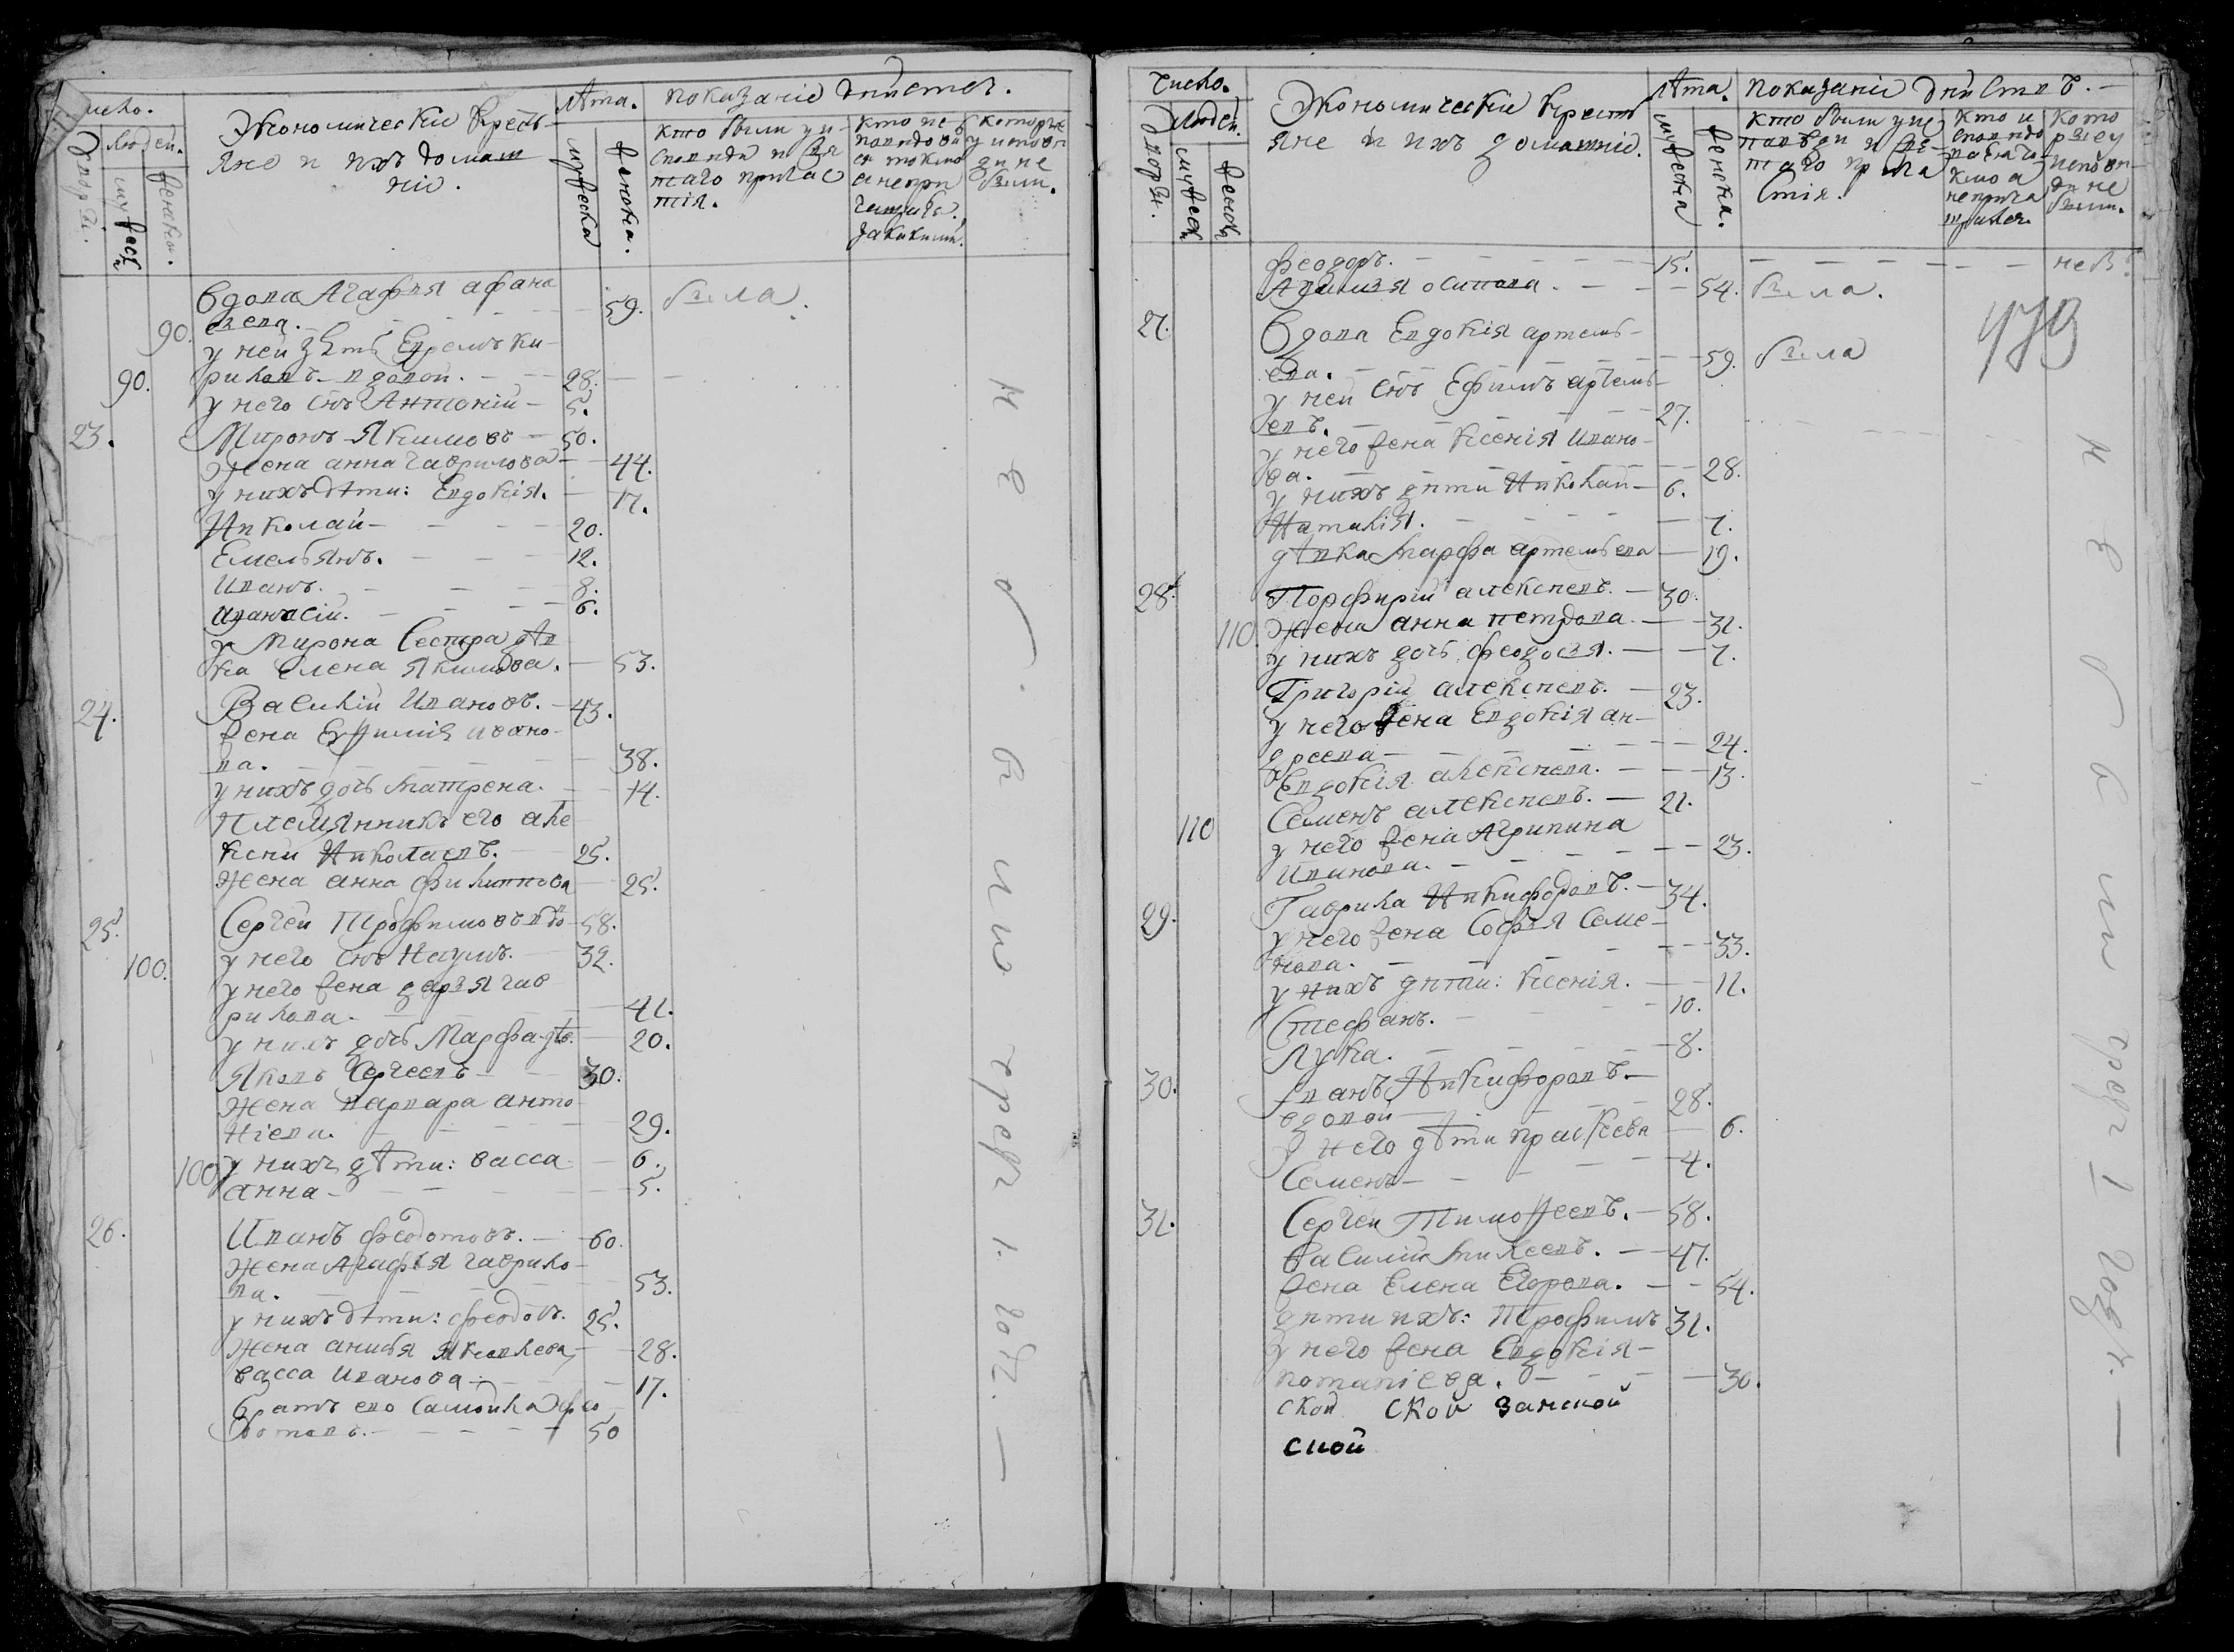 число.
людей.
дворы.
мужеск
женски.
Экономическіе Кресть-
яне и ихъ домаш
ніе.
лѣта.
мужеска
женска.
показаніе дѣйствъ.
кто были у и-
сповѣди и свя
таго прича
тія.
90.
Вдова Агафья афана
сьева.
59.
была.
90.
у ней зѣть Ефремъ ки-
риловъ вдовой.
28.
у него снъ Антоній
5.
23.
Миронъ Якимовъ
50.
Жена анна гаврилова
44.
у нихъ дѣти: Евдокія.
17.
Николай
20.
Емельянъ.
12.
Иванъ.
8.
6.
у Мирона Сестра дѣв
ка Елена Якимова.
53.
24.
Василій Ивановъ.
43.
жена Ефимія ивано
ва.
38.
у нихъ дочь матрена.
14.
Племянникъ его але
ксѣй Николаевъ.
25.
Жена анна филиппова
25.
25.
Сергей Трофимовъ вдо
58.
100.
у него снъ Наумъ.
32.
у него жена дарья гав
рилова.
41.
у нихъ дочь Марфа дѣв.
20.
Яковъ Сергеевъ
30.
Жена варвара анто
ніева.
29.
100
у нихъ дѣти: васса
6.
анна
5.
26.
Иванъ федотовъ.
60.
Жена Агафья гаврило
ва.
53.
у нихъ дѣти: феодоръ.
25.
Жена анисья Яковлева
28.
васса иванова
17.
братъ его Самойла фео
дотовъ.
50
небыли чрезъ 1. годъ.
число.
людей.
дворы.
мужеск
женск
Экономическіе Кресть
яне и ихъ домашніе.
лѣта.
мужеска
женска.
показаніе дѣйствъ.
кто были у ис
повѣди и свя-
таго прича
стія.
феодоръ.
15.
неб.
осипова.
54.
была.
27.
Вдова Евдокія артемь-
ева.
59.
была
у ней снъ Ефимъ артемь
евъ.
27.
у него жена Ксенія ивано-
ва.
28.
у нихъ дѣти Николай
6.
Наталія.
7.
дѣвка Марфа артемьева
19.
28.
Порфирій алексѣевъ.
30.
110
Жена анна петрова.
31.
у нихъ дочь феодосья.
7.
Григорій алексѣевъ.
23.
у него жена Евдокія ан-
дреева
24.
Евдокія алексѣева.
13.
110
Семенъ алексѣевъ.
21.
у него жена Агрипина
Иванова.
23.
29.
Гаврила Никифоровъ.
34.
у него жена Софья Семе-
нова.
33.
у нихъ дѣти: Ксенія.
11.
Стефанъ.
10.
Лука.
8.
30.
Иванъ Никифоровъ.
вдовой
28.
у него дѣти прасковья
6.
Семенъ
4.
31.
Сергей Тимофеевъ.
58.
василій
47.
жена Елена Егорова.
54.
дѣти ихъ: Трофимъ
31.
у него жена Евдокія
потапіева.
30.
ской ской занской
сной
небыли чрезъ 1 годъ.